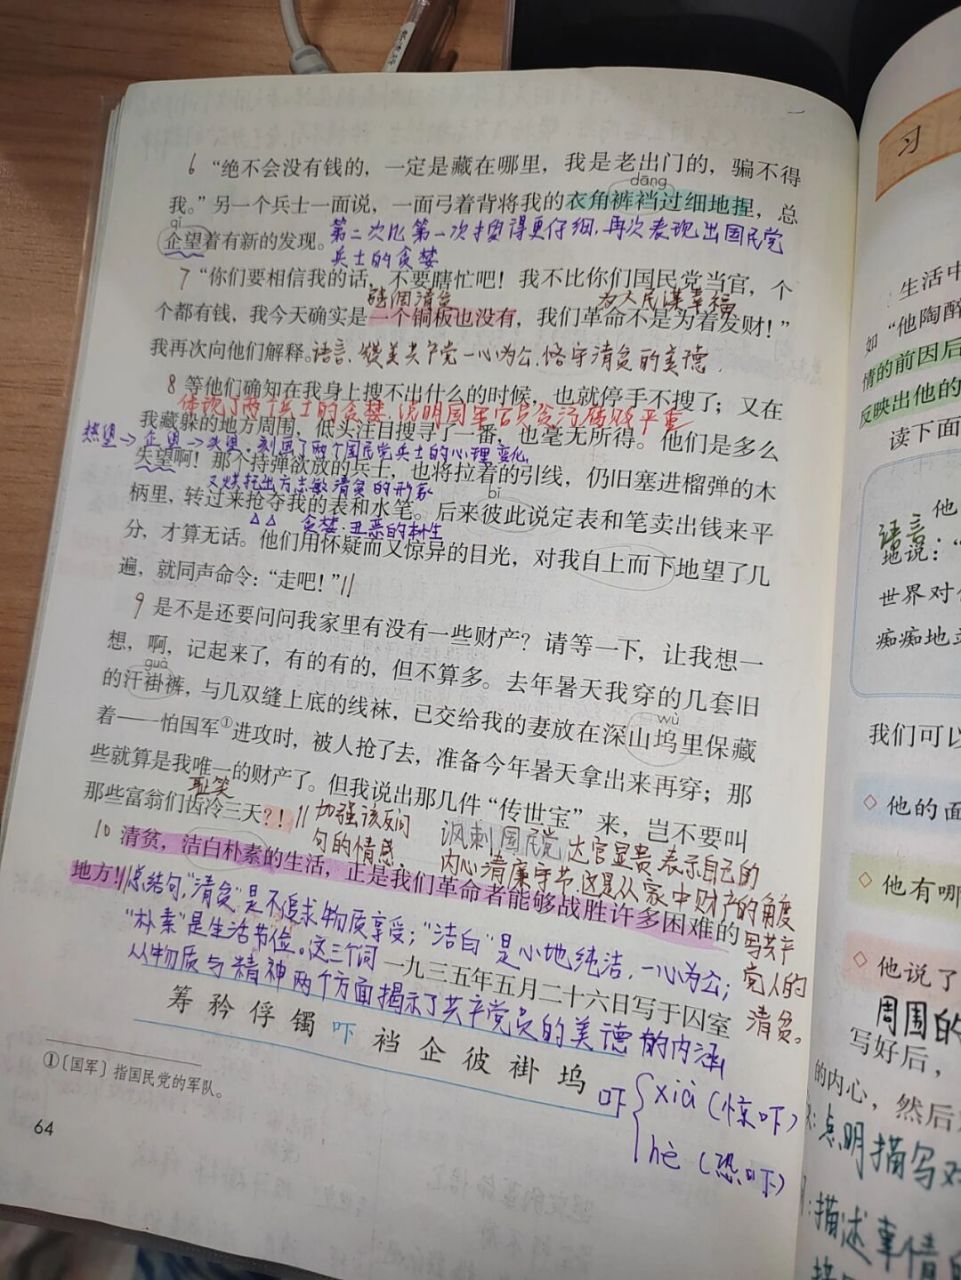 6 “绝不会没有钱的，一定是藏在哪里，我是老出门的，骗不得
dāng
我。”另一个兵士一面说，一面弓着背将我的衣角裤裆过细地捏，总
qǐ
企望着有新的发现。第二次比第一次搜得更仔细，再次表现出国民党
兵士的贪婪
7 “你们要相信我的话，不要瞎忙吧！我不比你们国民党当官，个
清贫 为人民谋幸福
个都有钱，我今天确实是一个铜板也没有，我们革命不是为着发财！”
我再次向他们解释。语言，赞美共产党一心为公，恪守清贫的美德．
8 等他们确知在我身上搜不出什么的时候，也就停手不搜了；又在
体现了两个兵士的贪婪，说明国军官员贪污腐败严重
我藏躲的地方周围，低头注目搜寻了一番，也毫无所得。他们是多么
热望→企望→失望，刻画了两个国民党兵士的心理变化，
失望啊！那个持弹欲放的兵士，也将拉着的引线，仍旧塞进榴弹的木
又烘托出方志敏清贫的形象
bǐ
柄里，转过来抢夺我的表和水笔。后来彼此说定表和笔卖出钱来平
△△ 贪婪、丑恶的本性
分，才算无话。他们用怀疑而又惊异的目光，对我自上而下地望了几
遍，就同声命令：“走吧！”
9 是不是还要问问我家里有没有一些财产？请等一下，让我想一
想，啊，记起来了，有的有的，但不算多。去年暑天我穿的几套旧
guà
的汗褂裤，与几双缝上底的线袜，已交给我的妻放在深山坞里保藏
wù
着——怕国军①进攻时，被人抢了去，准备今年暑天拿出来再穿；那
些就算是我唯一的财产了。但我说出那几件“传世宝”来，岂不要叫
耻笑
那些富翁们齿冷三天？！
加强该反问
句的情感
讽刺国民党达官显贵，表示自己的
内心清廉守节，这是从家中财产的角度
写共产
党人的
清贫。
10 清贫，洁白朴素的生活，正是我们革命者能够战胜许多困难的
地方！
总结句，“清贫”是不追求物质享受；“洁白”是心地纯洁，一心为公；
“朴素”是生活节俭。这三个词
从物质与精神两个方面揭示了共产党员的美德的内涵
一九三五年五月二十六日写于囚室
筹 矜 俘 镯 吓 裆 企 彼 褂 坞
吓 xià（惊吓）
hè（恐吓）
①〔国军〕指国民党的军队。
64
习
生活中
如“他陶醉
情的前因后
反映出他的
读下面
他
语言
地说：“
世界对
痴痴地
我们可以
◇ 他的面
◇ 他有哪
◇ 他说了
周围的
写好后，
的内心，然后
点明描写对
描述事情的